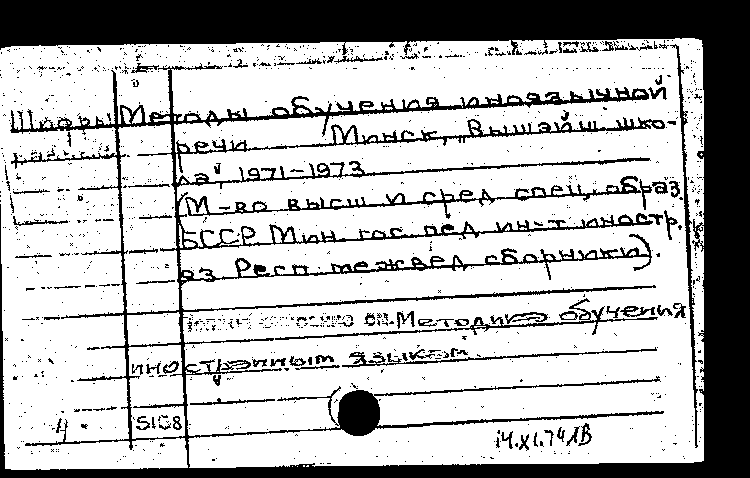 Шифры Методы обучения иноязычной
разные речи. Минск, „Вышэйш. шко-
ла", 1971-1973
(М-во высш и сред спец. образ.
БССР. Мин. гос. пед. ин-т иностр.
яз. Респ. межвед. сборники).
см. Методика обучения
иностранным языкам.
4. 5108
14.XI.74